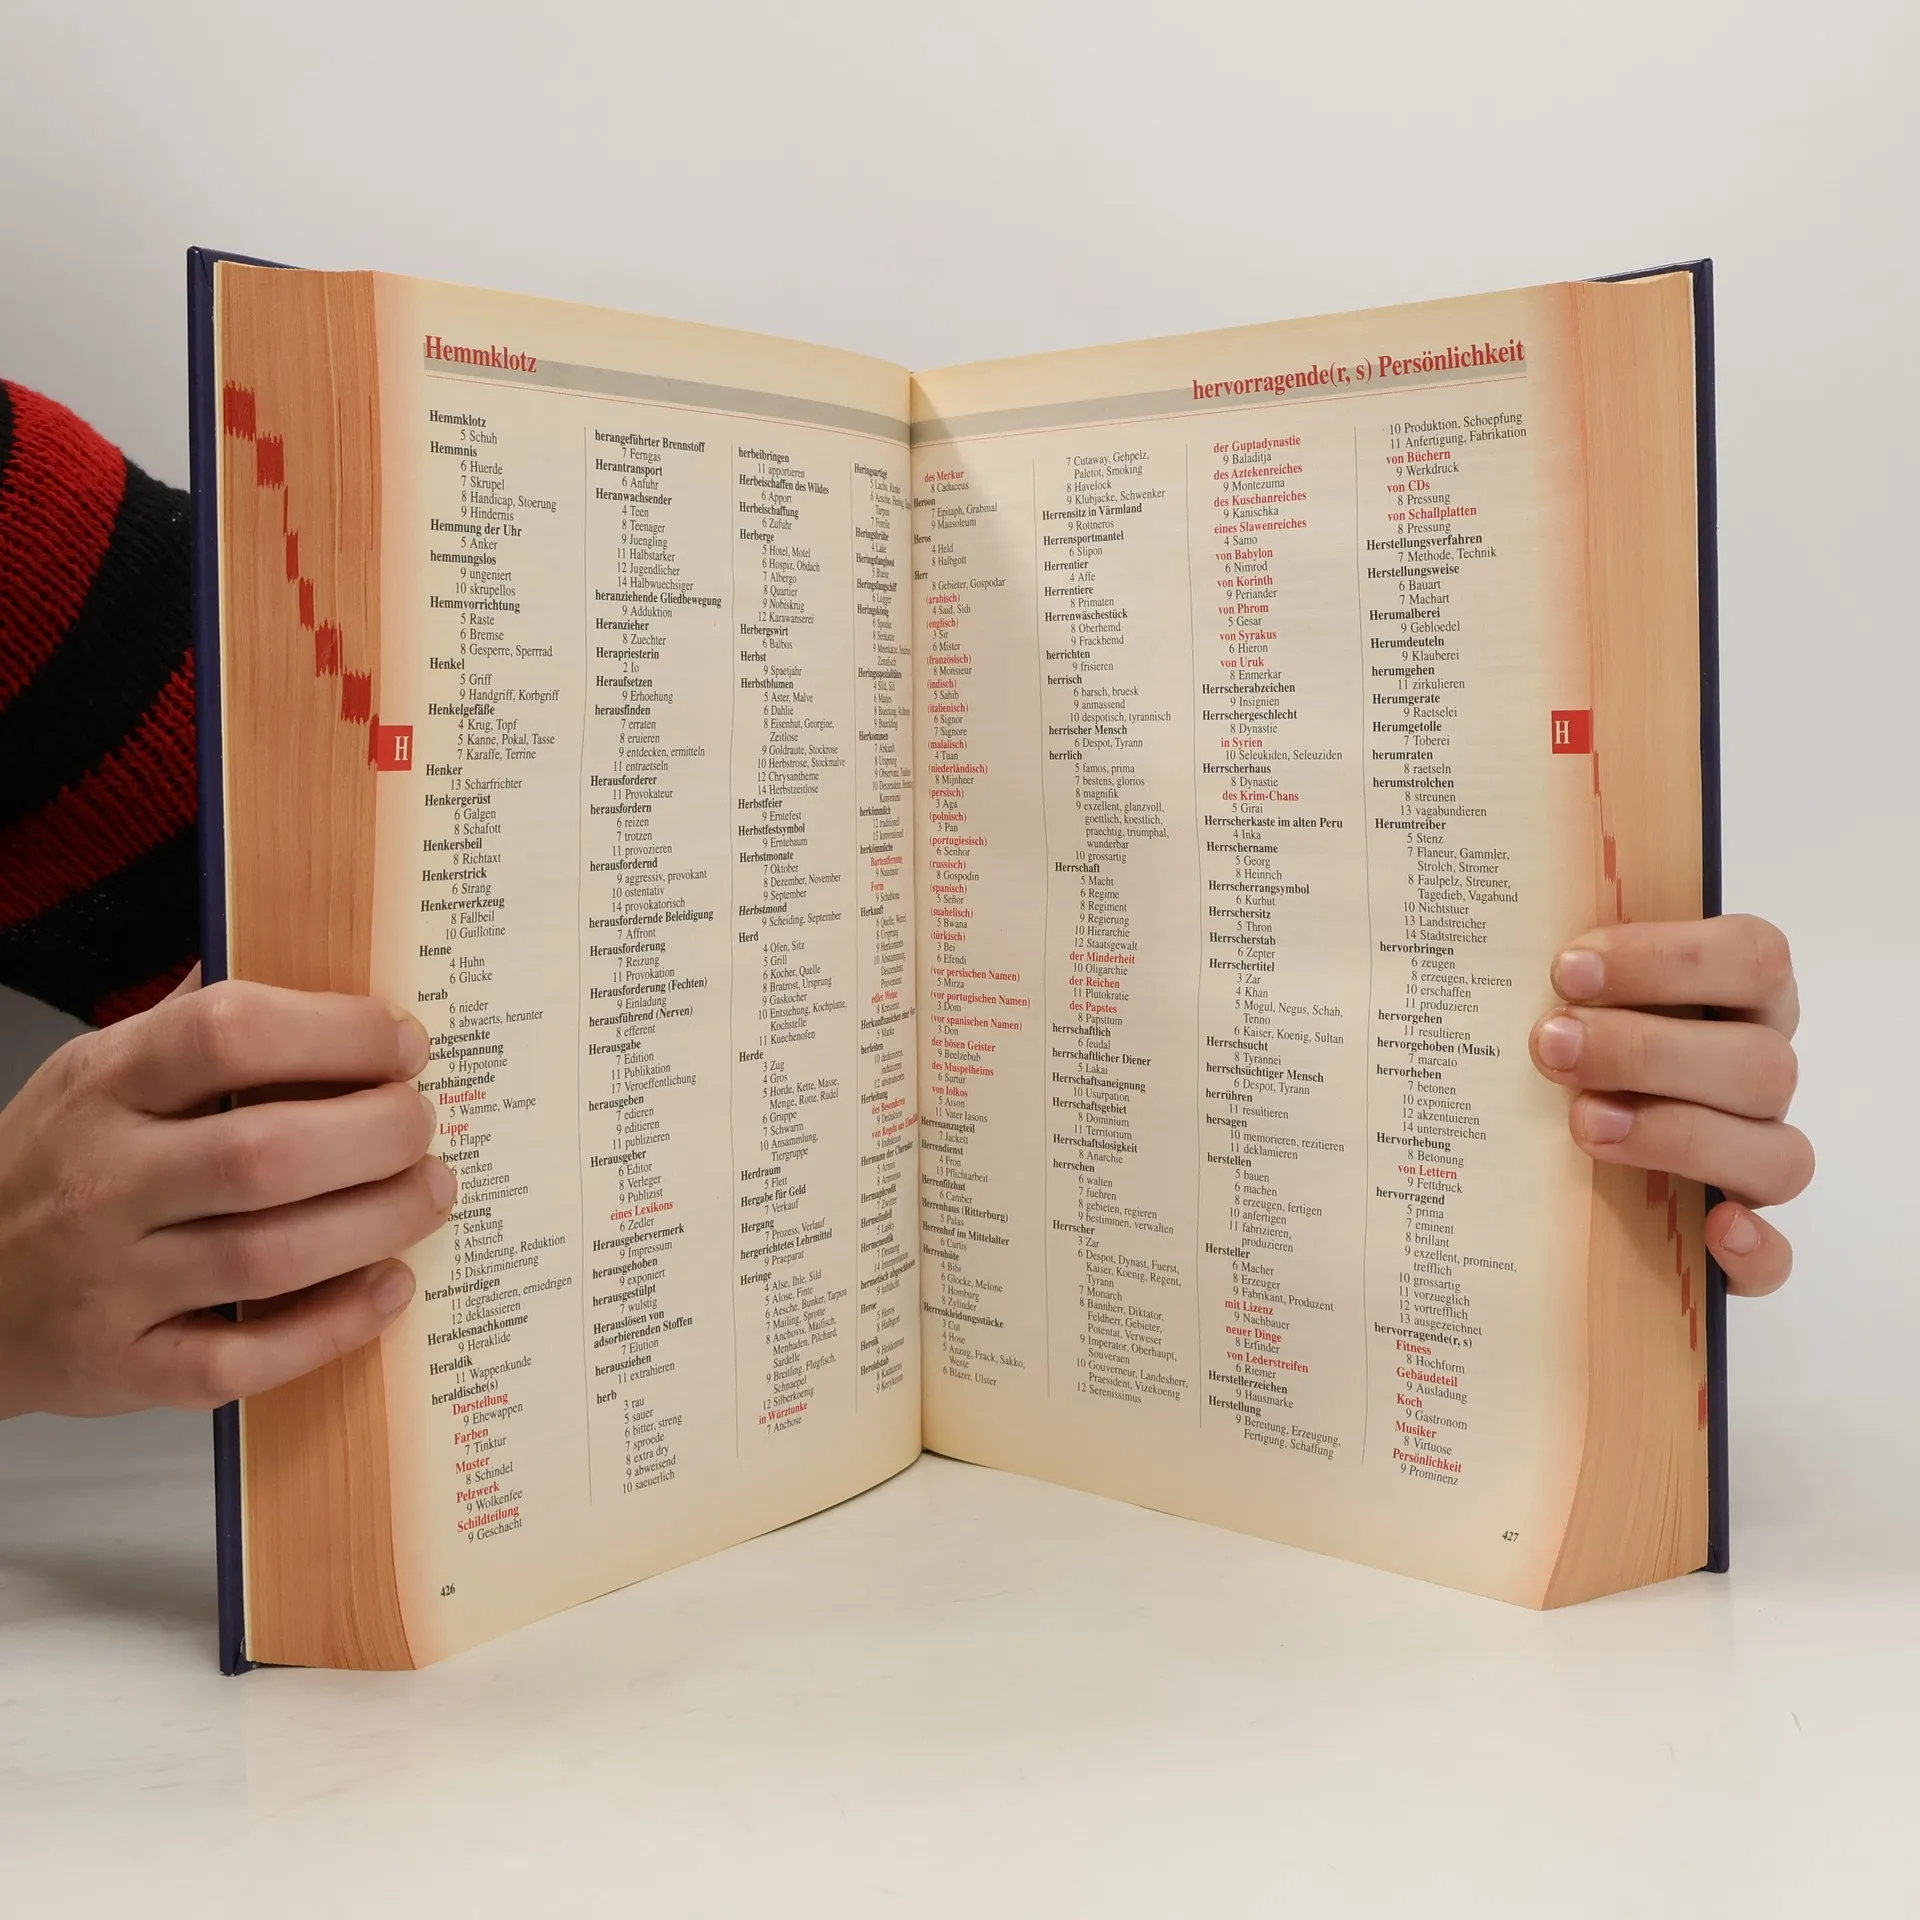 Hemmklotz
Hemmklotz
5 Schuh
Hemmnis
6 Huerde
7 Skrupel
8 Handicap, Stoerung
9 Hindernis
Hemmung der Uhr
5 Anker
hemmungslos
9 ungeniert
10 skrupellos
Hemmvorrichtung
5 Raste
6 Bremse
8 Gesperre, Sperrrad
Henkel
5 Griff
9 Handgriff, Korbgriff
Henkelgefäße
4 Krug, Topf
5 Kanne, Pokal, Tasse
7 Karaffe, Terrine
Henker
13 Scharfrichter
Henkergerüst
6 Galgen
8 Schafott
Henkersbeil
8 Richtaxt
Henkerstrick
6 Strang
Henkerwerkzeug
8 Fallbeil
10 Guillotine
Henne
4 Huhn
6 Glucke
herab
6 nieder
8 abwaerts, herunter
rabgesenkte
uskelspannung
9 Hypotonie
herabhängende
Hautfalte
5 Wamme, Wampe
Lippe
6 Flappe
absetzen
6 senken
reduzieren
diskriminieren
setzung
7 Senkung
8 Abstrich
9 Minderung, Reduktion
15 Diskriminierung
herabwürdigen
11 degradieren, erniedrigen
12 deklassieren
Heraklesnachkomme
9 Heraklide
Heraldik
11 Wappenkunde
heraldische(s)
Darstellung
9 Ehewappen
Farben
7 Tinktur
Muster
8 Schindel
Pelzwerk
9 Wolkenfee
Schildteilung
9 Geschacht
herangeführter Brennstoff
7 Ferngas
Herantransport
6 Anfuhr
Heranwachsender
4 Teen
8 Teenager
9 Juengling
11 Halbstarker
12 Jugendlicher
14 Halbwuechsiger
heranziehende Gliedbewegung
9 Adduktion
Heranzieher
8 Zuechter
Herapriesterin
2 Io
Heraufsetzen
9 Erhoehung
herausfinden
7 erraten
8 eruieren
9 entdecken, ermitteln
11 entraetseln
Herausforderer
11 Provokateur
herausfordern
6 reizen
7 trotzen
11 provozieren
herausfordernd
9 aggressiv, provokant
10 ostentativ
14 provokatorisch
herausfordernde Beleidigung
7 Affront
Herausforderung
7 Reizung
11 Provokation
Herausforderung (Fechten)
9 Einladung
herausführend (Nerven)
8 efferent
Herausgabe
7 Edition
11 Publikation
17 Veroeffentlichung
herausgeben
7 edieren
9 editieren
11 publizieren
Herausgeber
6 Editor
8 Verleger
9 Publizist
eines Lexikons
6 Zedler
Herausgebervermerk
9 Impressum
herausgehoben
9 exponiert
herausgestülpt
7 wulstig
Herauslösen von
adsorbierenden Stoffen
7 Elution
herausziehen
11 extrahieren
herb
3 rau
5 sauer
6 bitter, streng
7 sproede
8 extra dry
9 abweisend
10 saeuerlich
herbeibringen
11 apportieren
Herbeischaffen des Wildes
6 Apport
Herbeischaffung
6 Zufuhr
Herberge
5 Hotel, Motel
6 Hospiz, Obdach
7 Albergo
8 Quartier
9 Nobiskrug
12 Karawanserei
Herbergswirt
6 Balbos
Herbst
9 Spaetjahr
Herbstblumen
5 Aster, Malve
6 Dahlie
8 Eisenhut, Georgine,
Zeitlose
9 Goldraute, Stockrose
10 Herbstrose, Stockmalve
12 Chrysantheme
14 Herbstzeitlose
Herbstfeier
9 Erntefest
Herbstfestsymbol
9 Erntebaum
Herbstmonate
7 Oktober
8 Dezember, November
9 September
Herbstmond
9 Scheiding, September
Herd
4 Ofen, Sitz
5 Grill
6 Kocher, Quelle
8 Bratrost, Ursprung
9 Gaskocher
10 Entstehung, Kochplatte,
Kochstelle
11 Kuechenofen
Herde
3 Zug
4 Gros
5 Horde, Kette, Masse,
Menge, Rotte, Rudel
6 Gruppe
7 Schwarm
10 Ansammlung,
Tiergruppe
Herdraum
5 Flett
Hergabe für Geld
7 Verkauf
Hergang
7 Prozess, Verlauf
hergerichtetes Lehrmittel
9 Praeparat
Heringe
4 Alse, Ihle, Sild
5 Alose, Finte
6 Aesche, Bunker, Tarpon
7 Mailing, Sprotte
8 Anchovis, Maifisch,
Menhaden, Pilchard,
Sardelle
9 Breitling, Flugfisch,
Schnaepel
12 Silberkoenig
in Würztunke
7 Anchose
Heringsartige
Tarpon
7 Forelle
Heringsbrühe
4 Lake
Heringsfangboot
5 Buese
Heringsfangschiff
6 Logger
Heringskönig
Heringsspezialitäten
4 Sild, Sil
6 Matjes
Herkommen
7 Abkunft
8 Ursprung
herkömmlich
12 traditionell
13 konventionell
herkömmliche
Form
Herkunft
8 Ursprung
9 Herkommen
10 Abstammung,
edler Weise
herleiten
10 deduzieren,
Herleitung
des Besonderen
9 Deduktion
9 Induktion
Hermann der Cherusker
5 Armin
8 Arminius
Hermaphrodit
7 Zwitter
Hermelinfell
5 Lasky
Hermeneutik
7 Deutung
14 Interpretation
hermetisch abgeschlossen
9 luftdicht
Heroe
5 Heros
8 Halbgott
Heroik
9 Heldenmut
Heroldstab
9 Kerykeion
426
hervorragende(r, s) Persönlichkeit
des Merkur
8 Caduceus
Heroon
7 Epitaph, Grabmal
9 Mausoleum
Heros
4 Held
8 Halbgott
Herr
8 Gebieter, Gospodar
(arabisch)
4 Said, Sidi
(englisch)
3 Sir
6 Mister
(französisch)
8 Monsieur
(indisch)
5 Sahib
(italienisch)
6 Signor
7 Signore
(malaiisch)
4 Tuan
(niederländisch)
8 Mijnheer
(persisch)
3 Aga
(polnisch)
3 Pan
(portugiesisch)
6 Senhor
(russisch)
8 Gospodin
(spanisch)
5 Señor
(suahelisch)
5 Bwana
(türkisch)
3 Bei
6 Efendi
(vor persischen Namen)
5 Mirza
(vor portugischen Namen)
3 Dom
(vor spanischen Namen)
3 Don
der bösen Geister
9 Beelzebub
des Muspelheims
6 Surtur
von Iolkos
5 Aison
11 Vater Jasons
Herrenanzugteil
7 Jackett
Herrendienst
4 Fron
13 Pflichtarbeit
Herrenfilzhut
6 Camber
Herrenhaus (Ritterburg)
5 Palas
Herrenhof im Mittelalter
6 Curtis
Herrenhüte
4 Bibi
6 Glocke, Melone
7 Homburg
8 Zylinder
Herrenkleidungsstücke
3 Cut
4 Hose
5 Anzug, Frack, Sakko,
Weste
6 Blazer, Ulster
7 Cutaway, Gehpelz,
Paletot, Smoking
8 Havelock
9 Klubjacke, Schwenker
Herrensitz in Värmland
9 Rottneros
Herrensportmantel
6 Slipon
Herrentier
4 Affe
Herrentiere
8 Primaten
Herrenwäschestück
8 Oberhemd
9 Frackhemd
herrichten
9 frisieren
herrisch
6 barsch, bruesk
9 anmassend
10 despotisch, tyrannisch
herrischer Mensch
6 Despot, Tyrann
herrlich
5 famos, prima
7 bestens, glorios
8 magnifik
9 exzellent, glanzvoll,
goettlich, koestlich,
praechtig, triumphal,
wunderbar
10 grossartig
Herrschaft
5 Macht
6 Regime
8 Regiment
9 Regierung
10 Hierarchie
12 Staatsgewalt
der Minderheit
10 Oligarchie
der Reichen
11 Plutokratie
des Papstes
8 Papsttum
herrschaftlich
6 feudal
herrschaftlicher Diener
5 Lakai
Herrschaftsaneignung
10 Usurpation
Herrschaftsgebiet
8 Dominium
11 Territorium
Herrschaftslosigkeit
8 Anarchie
herrschen
6 walten
7 fuehren
8 gebieten, regieren
9 bestimmen, verwalten
Herrscher
3 Zar
6 Despot, Dynast, Fuerst,
Kaiser, Koenig, Regent,
Tyrann
7 Monarch
8 Bannherr, Diktator,
Feldherr, Gebieter,
Potentat, Verweser
9 Imperator, Oberhaupt,
Souveraen
10 Gouverneur, Landesherr,
Praesident, Vizekoenig
12 Serenissimus
der Guptadynastie
9 Baladitja
des Aztekenreiches
9 Montezuma
des Kuschanreiches
9 Kanischka
eines Slawenreiches
4 Samo
von Babylon
6 Nimrod
von Korinth
9 Periander
von Phrom
5 Gesar
von Syrakus
6 Hieron
von Uruk
8 Enmerkar
Herrscherabzeichen
9 Insignien
Herrschergeschlecht
8 Dynastie
in Syrien
10 Seleukiden, Seleuziden
Herrscherhaus
8 Dynastie
des Krim-Chans
5 Girai
Herrscherkaste im alten Peru
4 Inka
Herrschername
5 Georg
8 Heinrich
Herrscherrangsymbol
6 Kurhut
Herrschersitz
5 Thron
Herrscherstab
6 Zepter
Herrschertitel
3 Zar
4 Khan
5 Mogul, Negus, Schah,
Tenno
6 Kaiser, Koenig, Sultan
Herrschsucht
8 Tyrannei
herrschsüchtiger Mensch
6 Despot, Tyrann
herrühren
11 resultieren
hersagen
10 memorieren, rezitieren
11 deklamieren
herstellen
5 bauen
6 machen
8 erzeugen, fertigen
10 anfertigen
11 fabrizieren,
produzieren
Hersteller
6 Macher
8 Erzeuger
9 Fabrikant, Produzent
mit Lizenz
9 Nachbauer
neuer Dinge
8 Erfinder
von Lederstreifen
6 Riemer
Herstellerzeichen
9 Hausmarke
Herstellung
9 Bereitung, Erzeugung,
Fertigung, Schaffung
10 Produktion, Schoepfung
11 Anfertigung, Fabrikation
von Büchern
9 Werkdruck
von CDs
8 Pressung
von Schallplatten
8 Pressung
Herstellungsverfahren
7 Methode, Technik
Herstellungsweise
6 Bauart
7 Machart
Herumalberei
9 Gebloedel
Herumdeuteln
9 Klauberei
herumgehen
11 zirkulieren
Herumgerate
9 Raetselei
Herumgetolle
7 Toberei
herumraten
8 raetseln
herumstrolchen
8 streunen
13 vagabundieren
Herumtreiber
5 Stenz
7 Flaneur, Gammler,
Strolch, Stromer
8 Faulpelz, Streuner,
Tagedieb, Vagabund
10 Nichtstuer
13 Landstreicher
14 Stadtstreicher
hervorbringen
6 zeugen
8 erzeugen, kreieren
10 erschaffen
11 produzieren
hervorgehen
11 resultieren
hervorgehoben (Musik)
7 marcato
hervorheben
7 betonen
10 exponieren
12 akzentuieren
14 unterstreichen
Hervorhebung
8 Betonung
von Lettern
9 Fettdruck
hervorragend
5 prima
7 eminent
8 brillant
9 exzellent, prominent,
trefflich
10 grossartig
11 vorzueglich
12 vortrefflich
13 ausgezeichnet
hervorragende(r, s)
Fitness
8 Hochform
Gebäudeteil
9 Ausladung
Koch
9 Gastronom
Musiker
8 Virtuose
Persönlichkeit
9 Prominenz
427
H
H